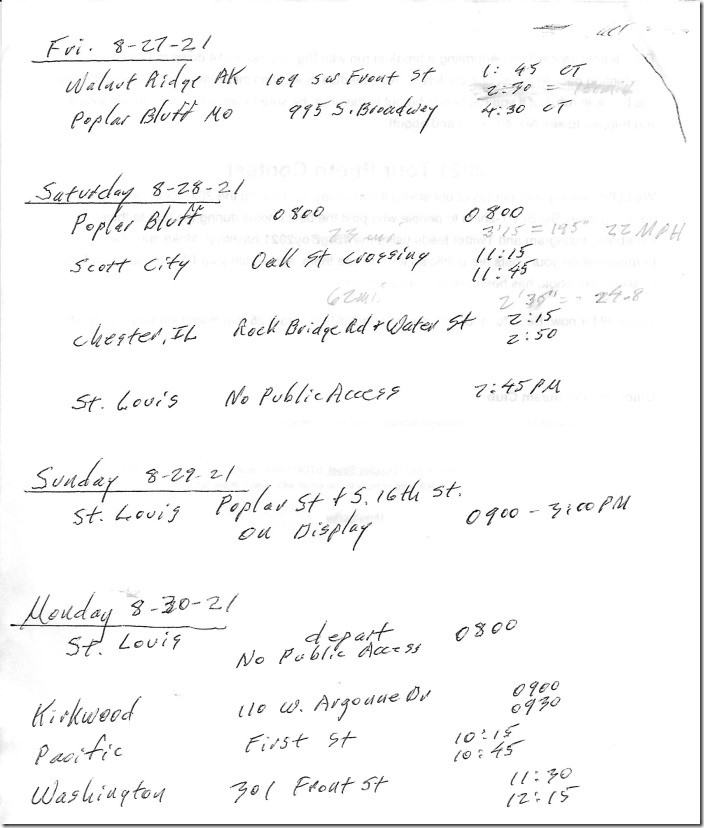 Fri. 8-27-21
Walnut Ridge AK 109 SW Front St 1:45 CT
2:30 =
Poplar Bluff MO 995 S. Broadway 4:30 CT
Saturday 8-28-21
Poplar Bluff 0800 0800
3'15 = 195" 22 MPH
Scott City Oak St Crossing 11:15
11:45
62 mi. 2'35" = 24.8
Chester, IL Rock Bridge Rd + Water St 2:15
2:50
St. Louis No Public Access 7:45 PM
Sunday 8-29-21
St. Louis Poplar St + S. 16th St. 0900 - 3:00 PM
on Display
Monday 8-30-21
St. Louis depart 0800
No Public Access
Kirkwood 110 W. Argonne Dr 0900
0930
Pacific First St 10:15
10:45
Washington 301 Front St 11:30
12:15